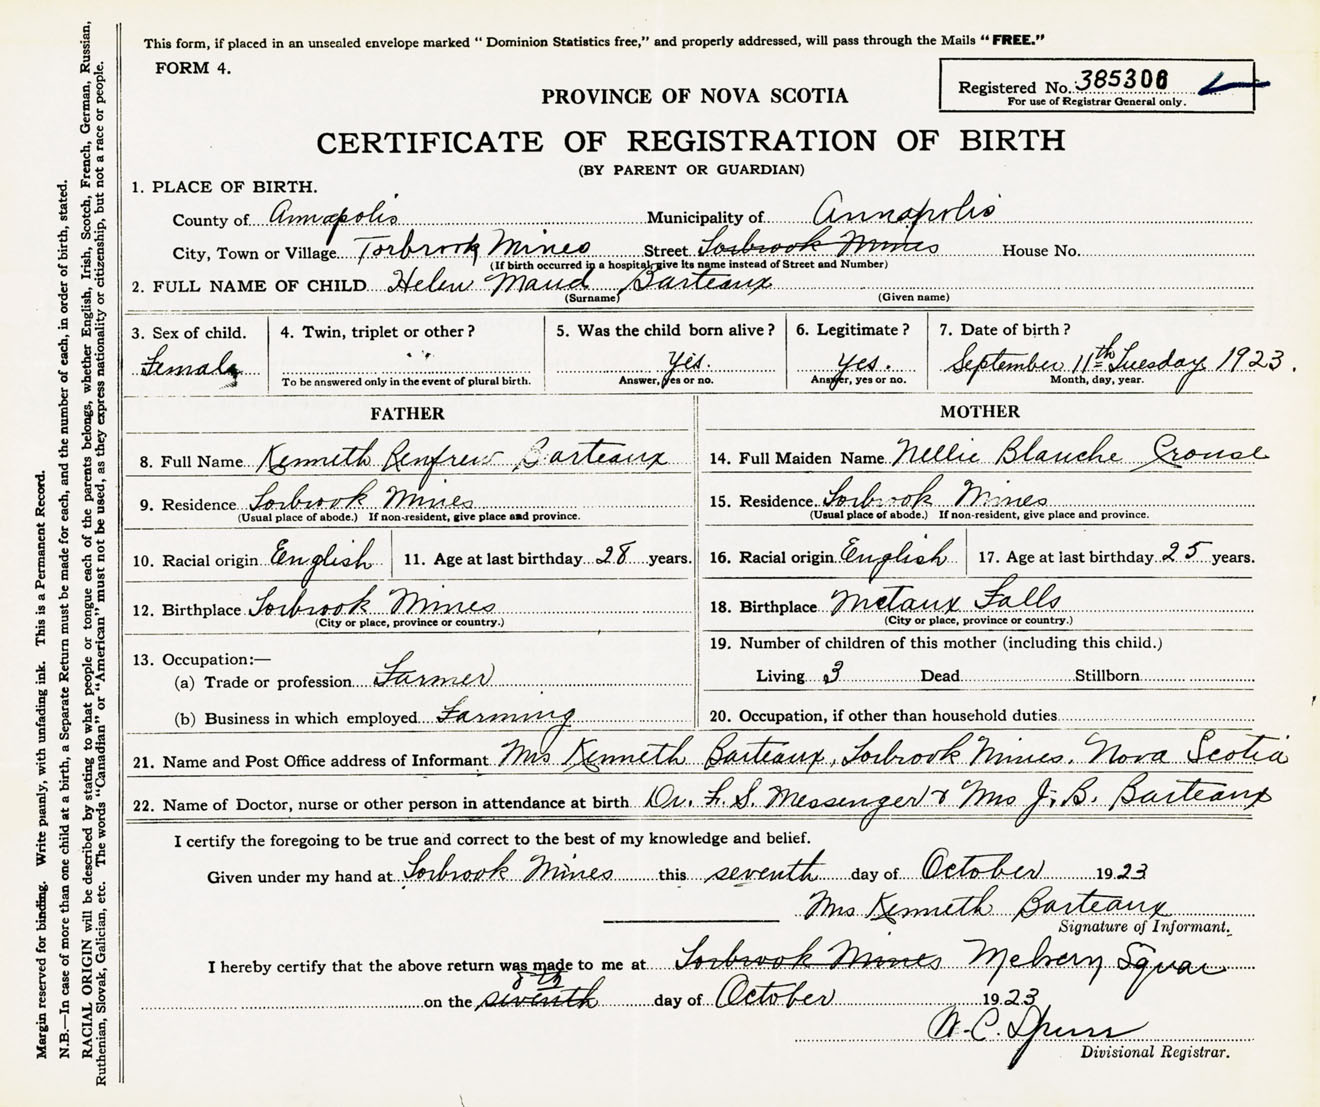 This form, if placed in an unsealed envelope marked “ Dominion Statistics free,” and properly addressed, will pass through the Mails “FREE.”
FORM 4.
Registered No. 385306
For use of Registrar General only.
PROVINCE OF NOVA SCOTIA
CERTIFICATE OF REGISTRATION OF BIRTH
(BY PARENT OR GUARDIAN)
1. PLACE OF BIRTH.
County of Annapolis Municipality of Annapolis
City, Town or Village Torbrook Mines Street Torbrook Mines House No.
(If birth occurred in a hospital give its name instead of Street and Number)
2. FULL NAME OF CHILD Helen Maud Barteaux
(Surname) (Given name)
3. Sex of child. 4. Twin, triplet or other? 5. Was the child born alive? 6. Legitimate? 7. Date of birth?
Female " yes. yes. September 11th Tuesday 1923.
To be answered only in the event of plural birth. Answer, yes or no. Answer, yes or no. Month, day, year.
FATHER MOTHER
8. Full Name Kenneth Renfrew Barteaux 14. Full Maiden Name Nellie Blanche Crouse
9. Residence Torbrook Mines 15. Residence Torbrook Mines
(Usual place of abode.) If non-resident, give place and province. (Usual place of abode.) If non-resident, give place and province.
10. Racial origin English 11. Age at last birthday 28 years. 16. Racial origin English 17. Age at last birthday 25 years.
12. Birthplace Torbrook Mines 18. Birthplace Metaux Falls
(City or place, province or country.) (City or place, province or country.)
19. Number of children of this mother (including this child.)
13. Occupation:—
(a) Trade or profession Farmer Living 3 Dead Stillborn
(b) Business in which employed Farming 20. Occupation, if other than household duties
21. Name and Post Office address of Informant Mrs Kenneth Barteaux, Torbrook Mines, Nova Scotia
22. Name of Doctor, nurse or other person in attendance at birth Dr. L. S. Messenger & Mrs J. B. Barteaux
I certify the foregoing to be true and correct to the best of my knowledge and belief.
Given under my hand at Torbrook Mines this seventh day of October 1923
Mrs Kenneth Barteaux
Signature of Informant.
I hereby certify that the above return was made to me at Torbrook Mines Melvern Square
8th
on the seventh day of October 1923
W. C. Spurr
Divisional Registrar.
Margin reserved for binding. Write plainly, with unfading ink. This is a Permanent Record.
N.B.—In case of more than one child at a birth, a Separate Return must be made for each, and the number of each, in order of birth, stated.
RACIAL ORIGIN will be described by stating to what people or tongue each of the parents belongs, whether English, Irish, Scotch, French, German, Russian,
Ruthenian, Slovak, Galician, etc. The words “Canadian” or “American” must not be used, as they express nationality or citizenship, but not a race or people.